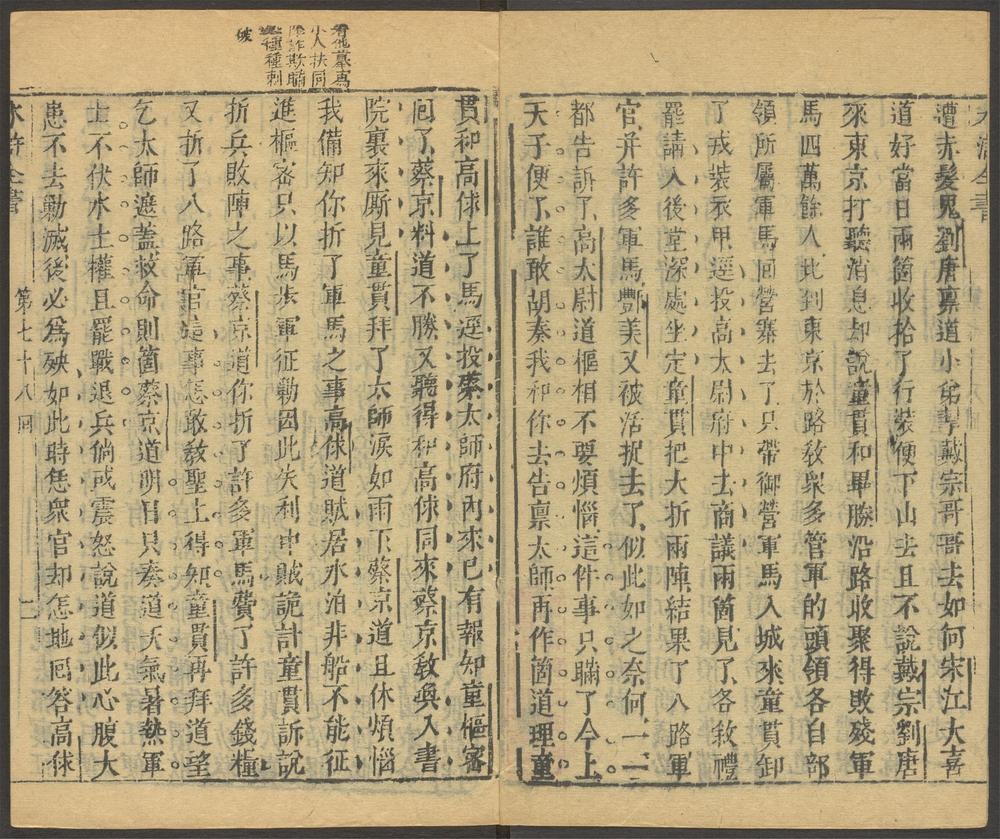 水滸全書
遭赤髮鬼劉唐稟道小弟幇戴宗哥哥去如何宋江大喜
道好當日兩箇收拾了行裝便下山去且不說戴宗劉唐
來東京打聽消息却說童貫和畢勝沿路收聚得敗殘軍
馬四萬餘人比到東京於路敎衆多管軍的頭領各自部
領所屬軍馬回營寨去了只帶御營軍馬入城來童貫卸
了戎裝衣甲逕投高太尉府中去商議兩箇見了各敘禮
罷請入後堂深處坐定童貫把大折兩陣結果了八路軍
官并許多軍馬酆美又被活捉去了似此如之奈何一一
都告訴了高太尉道樞相不要煩惱這件事只瞞了今上
天子便了誰敢胡奏我和你去告稟太師再作箇道理童
貫和高俅上了馬逕投蔡太師府內來已有報知童樞密
回了蔡京料道不勝又聽得和高俅同來蔡京敎喚入書
院裏來厮見童貫拜了太師淚如雨下蔡京道且休煩惱
我備知你折了軍馬之事高俅道賊居水泊非船不能征
進樞密只以馬步軍征勦因此失利中賊詭計童貫訴說
折兵敗陣之事蔡京道你折了許多軍馬費了許多錢糧
又折了八路軍官這事怎敢敎聖上得知童貫再拜道望
乞太師遮蓋救命則箇蔡京道明日只奏道天氣暑熱軍
士不伏水土權且罷戰退兵倘或震怒說道似此心腹大
患不去勦滅後必為殃如此時恁衆官却怎地回答高俅
水滸全書
第七十八回
二
小人扶同
欺瞞
種種刺